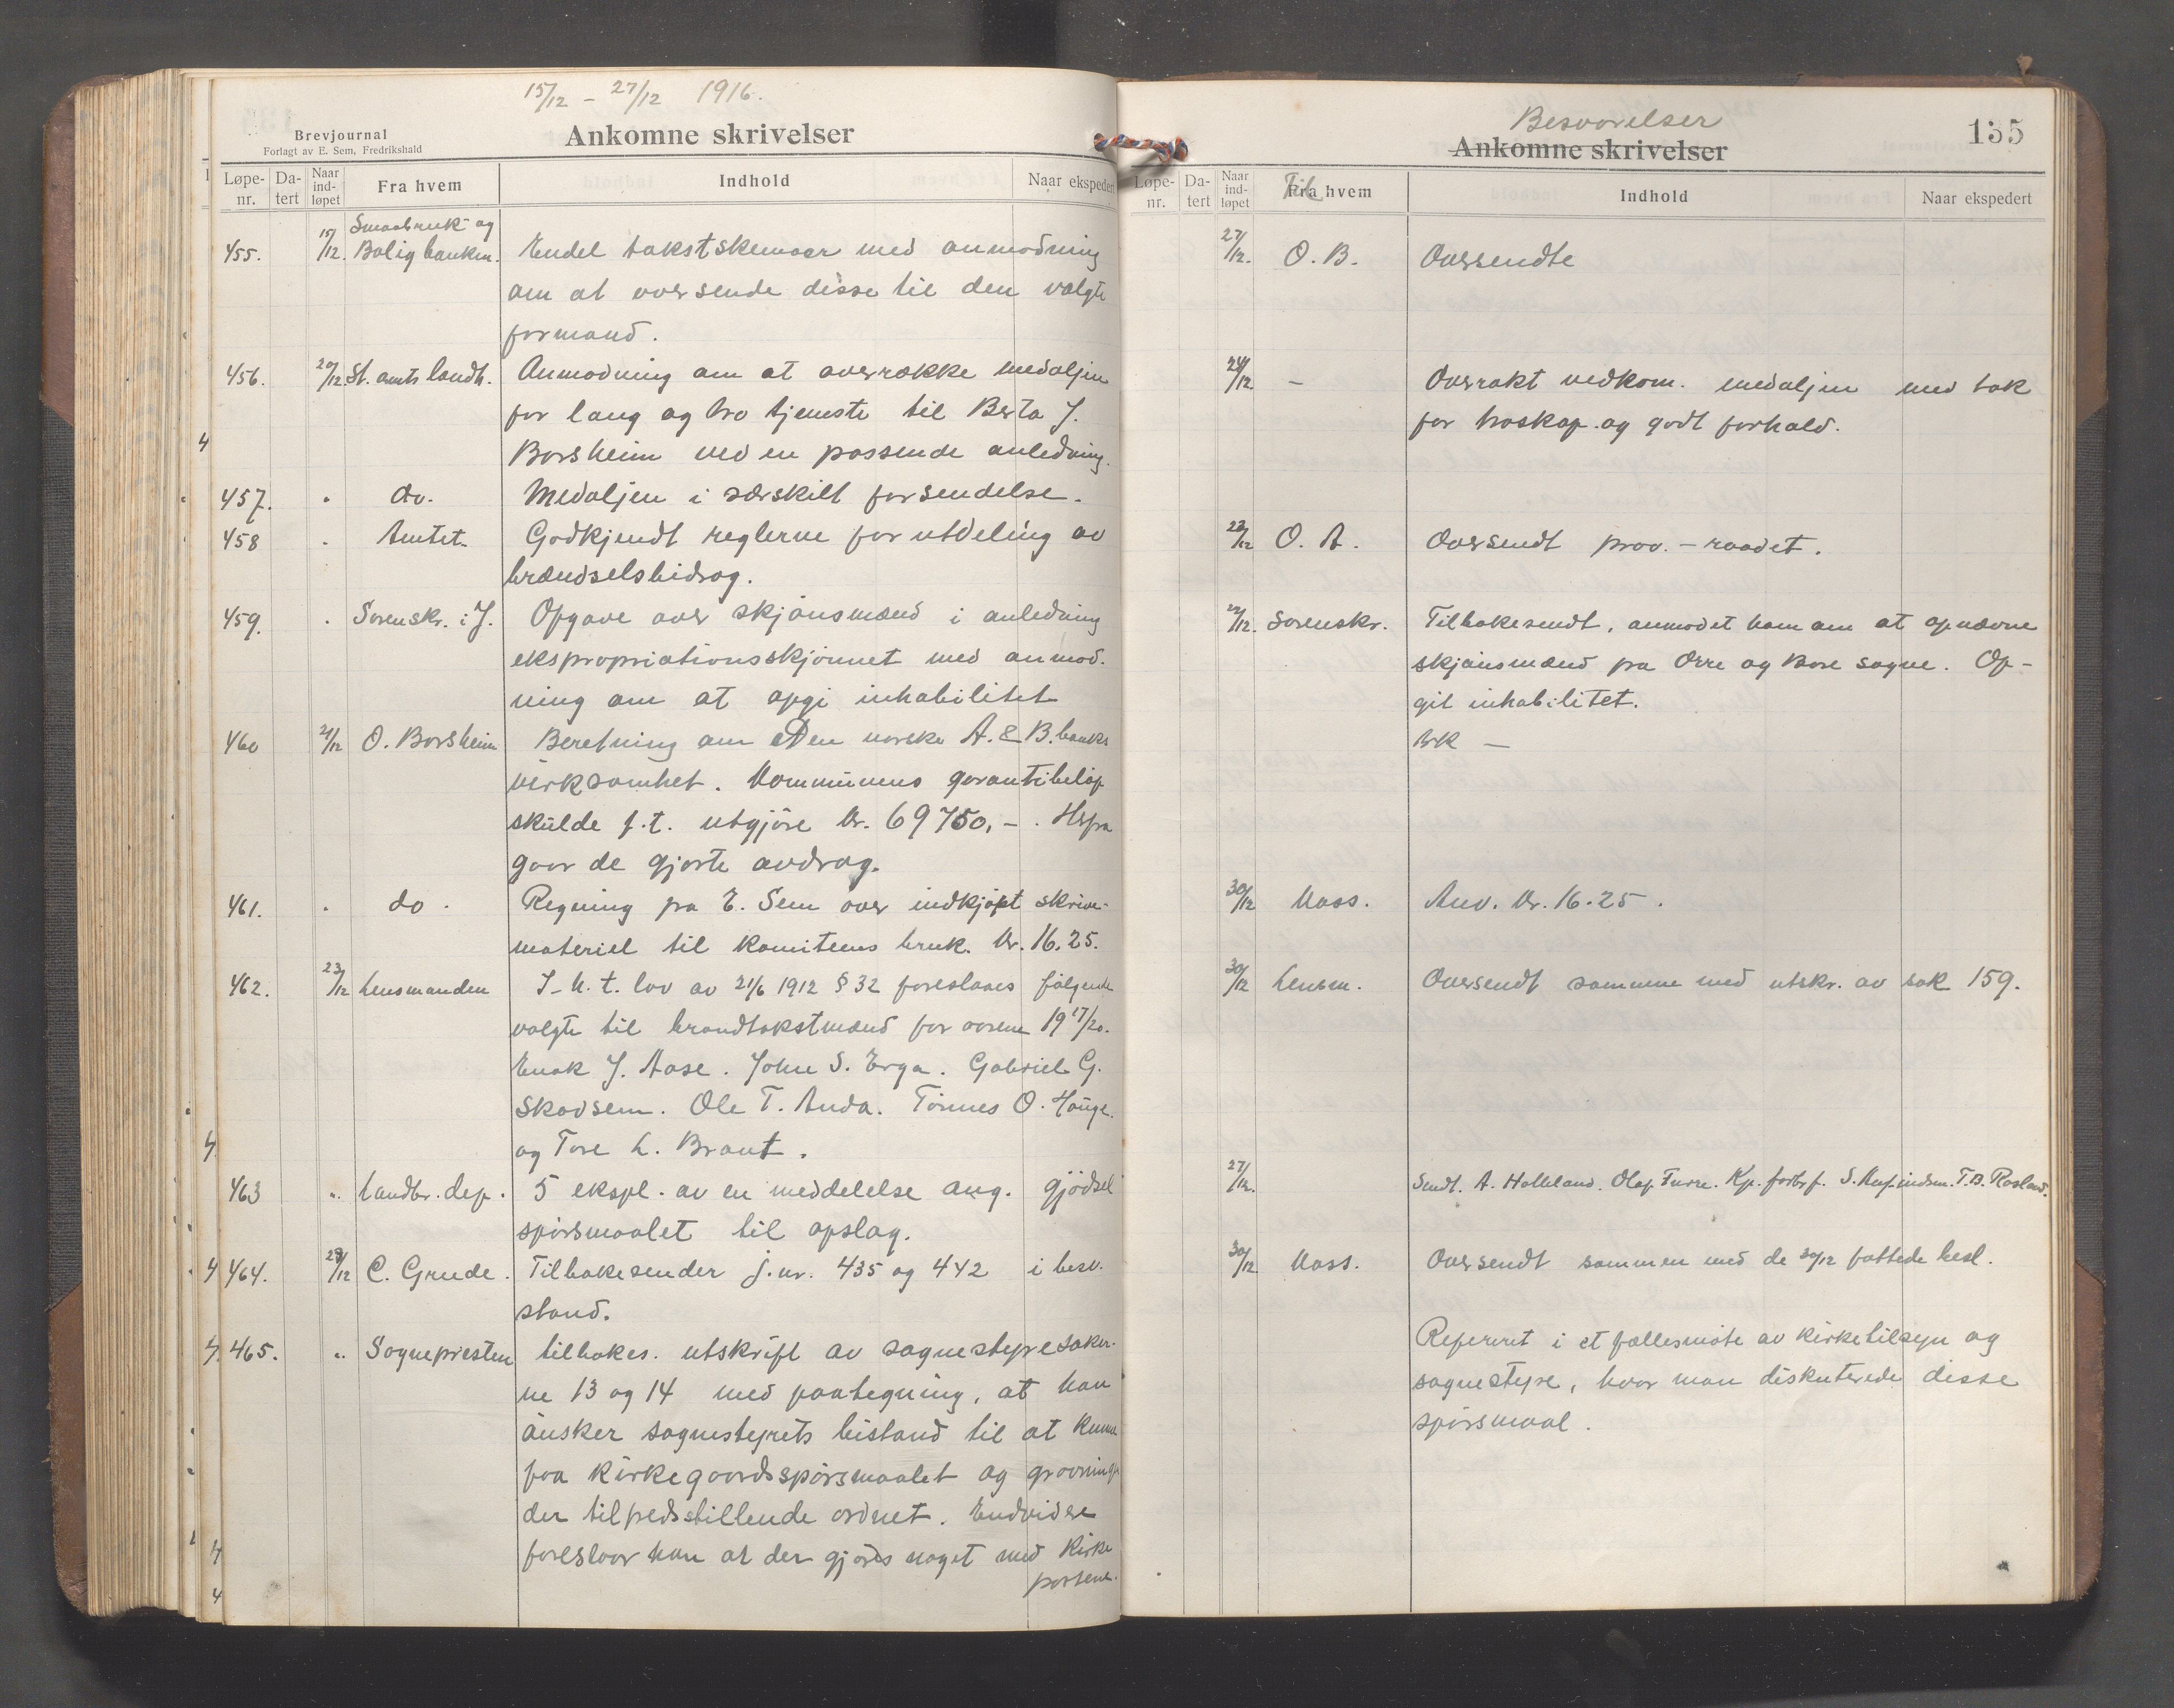 15/12 - 27/12 1916.
Brevjournal
Forlagt av E. Sem, Fredrikshald
Ankomne skrivelser
Løpe-nr. Da-tert Naar ind-løpet Fra hvem Indhold Naar ekspedert
Smaabruk- og
455. 15/12. Boligbanken. Endel takstskemaer med anmodning
om at oversende disse til den valgte
formand.
456. 20/12. St. amts landh. Anmodning om at overrække medaljen
for lang og tro tjeneste til Berta J.
Borsheim ved en passende anledning.
457. " do. Medaljen i særskilt forsendelse.
458 " Amtet. Godkjendt reglerne for utdeling av
brændselsbidrag.
459. " Sorenskr. i J. Opgave over skjønsmænd i anledning
ekspropriationsskjønnet med anmod.
ning om at opgi inhabilitet
460 21/12 O. Borsheim Beretning om Den norske A. & B. banks
virksomhet. Kommunens garantibeløp
skulde f.t. utgjøre kr. 69750,-. Herfra
gaar de gjorte avdrag.
461. " do. Regning fra E. Sem over indkjøpt skrive-
materiel til komiteens bruk. kr. 16.25.
462. 23/12 Lensmanden I h. t. lov av 21/6 1912 § 32 foreslaaes følgende
valgte til brandtakstmænd for aarene 1917/20.
Enok J. Aase. John S. Erga. Gabriel G.
Skadsem. Ole T. Anda. Tønnes O. Hauge.
og Tore L. Braut.
463 " Landbr. dep. 5 ekspl. av en meddelelse ang. gjødsel
spørsmaalet til opslag.
464. 27/12 C. Grude. Tilbakesender j.nr. 435 og 442 i besv.
stand.
465. " Sognepresten tilbakes. utskrift av sognestyresaker.
ne 13 og 14 med paategning, at han
ønsker sognestyrets bistand til at kunne
faa kirkegaardsspørsmaalet og gravninger
der tilfredsstillende ordnet. Endvidere
foreslaar han at der gjøres noget med kirke
portene.
Besvarelser
Ankomne skrivelser
155
Løpe-nr. Da-tert Naar ind-løpet Fra hvem Til Indhold Naar ekspedert
27/12. O. B. Oversendte
24/12 - Overrakt vedkom. medaljen med tak
for troskap og godt forhold.
22/12 O. A. Oversendt prov.-raadet.
22/12. Sorenskr. Tilbakesendt, anmodet ham om at opnævne
skjønsmænd fra Orre og Bore sogne. Op-
git inhabilitet.
30/12 Kass. Anv. kr. 16.25.
30/12 Lensm. Oversendt sammen med utskr. av sak 159.
27/12. Sendt. A. Holleland. Olaf Furre. Kp. forbr.f. T.B. Rosland.
30/12 Kass. Oversendt sammen med de 30/12 fattede besl.
Referert i et fællesmøte av kirketilsyn og
sognestyre, hvor man diskuterede disse
spørsmaal.